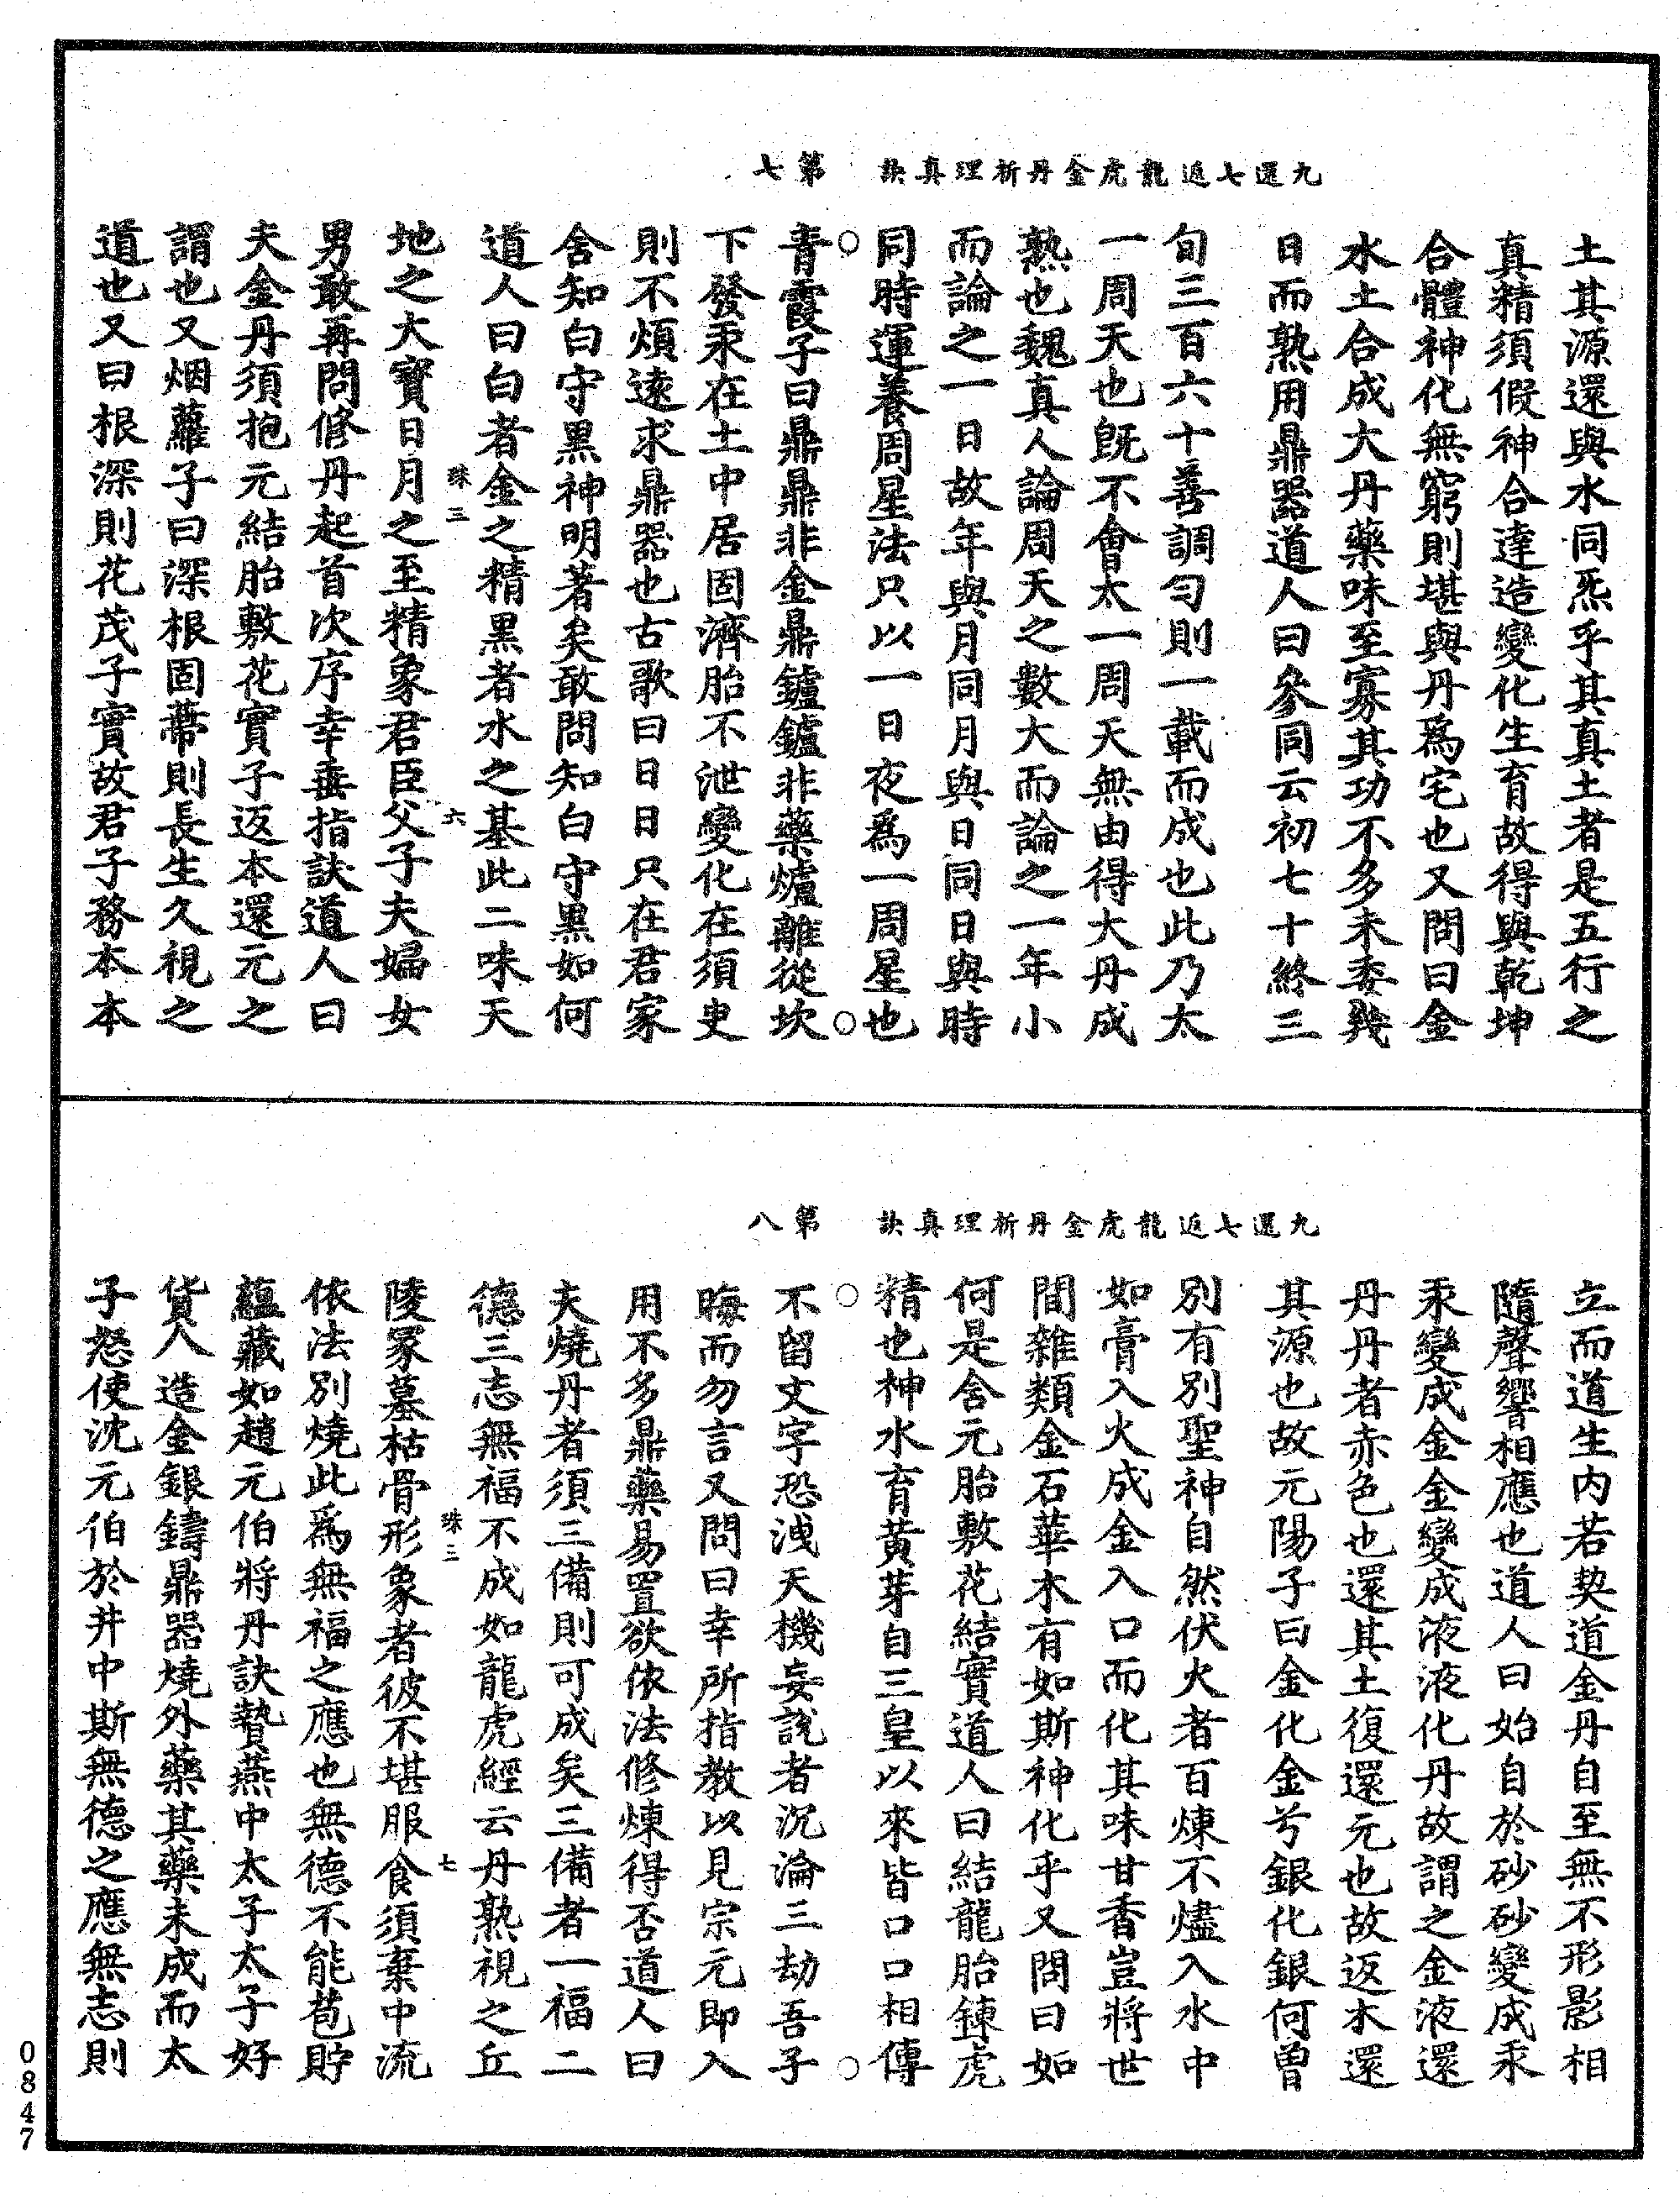 九還七返龍虎金丹析理真訣　第七
土其源還與水同炁乎其真土者是五行之
真精須假神合達造變化生育故得與乾坤
合體神化無窮則堪與丹爲宅也又問曰金
水土合成大丹藥味至寡其功不多未委幾
日而熟用鼎器道人曰參同云初七十終三
旬三百六十善調勻則一載而成也此乃太
一周天也旣不會太一周天無由得大丹成
熟也魏真人論周天之數大而論之一年小
而論之一日故年與月同月與日同日與時
同時運養周星法只以一日夜爲一周星也
青霞子曰鼎鼎非金鼎鑪鑪非藥爐離從坎
下發汞在土中居固濟胎不泄變化在須臾
則不煩遠求鼎器也古歌曰日日只在君家
舍知白守黑神明著矣敢問知白守黑如何
道人曰白者金之精黑者水之基此二味天
珠三　六
地之大寶日月之至精象君臣父子夫婦女
男敢再問修丹起首次序幸垂指訣道人曰
夫金丹須抱元結胎敷花實子返本還元之
謂也又烟蘿子曰深根固蔕則長生久視之
道也又曰根深則花茂子實故君子務本本
九還七返龍虎金丹析理真訣　第八
立而道生內若契道金丹自至無不形影相
隨聲響相應也道人曰始自於砂砂變成汞
汞變成金金變成液液化丹故謂之金液還
丹丹者赤色也還其土復還元也故返本還
其源也故元陽子曰金化金兮銀化銀何曾
別有別聖神自然伏火者百煉不燼入水中
如膏入火成金入口而化其味甘香豈將世
間雜類金石華木有如斯神化乎又問曰如
何是含元胎敷花結實道人曰結龍胎鍊虎
精也神水育黃芽自三皇以來皆口口相傳
不留文字恐洩天機妄說者沉淪三劫吾子
晦而勿言又問曰幸所指教以見宗元即入
用不多鼎藥易置欲依法修煉得否道人曰
夫燒丹者須三備則可成矣三備者一福二
德三志無福不成如龍虎經云丹熟視之丘
珠三　七
陵冢墓枯骨形象者彼不堪服食須棄中流
依法別燒此爲無福之應也無德不能苞貯
蘊藏如趙元伯將丹訣贄燕中太子太子好
貨人造金銀鑄鼎器燒外藥其藥未成而太
子怒使沈元伯於井中斯無德之應無志則
0847